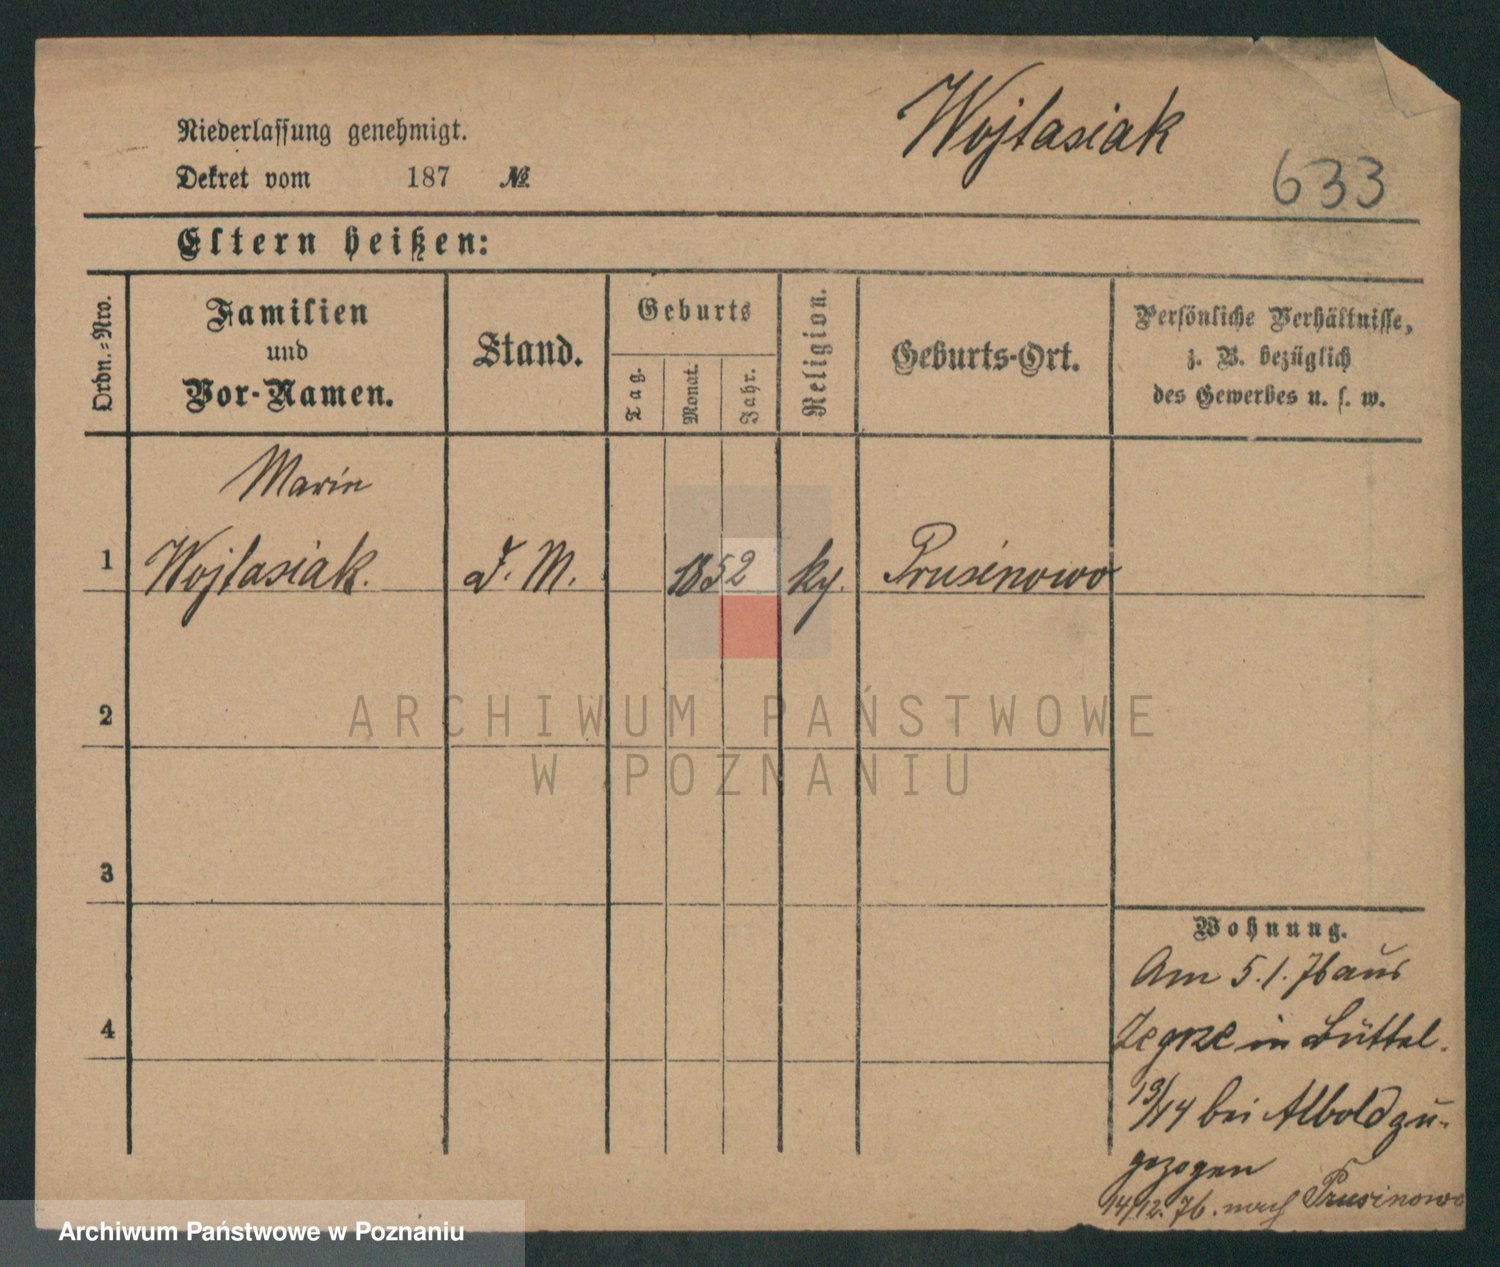 Wojtasiak
633
Niederlassung genehmigt.
Dekret vom 187 №
Eltern heißen:
Ordn.-Nro.
Familien
und
Vor-Namen.
Stand.
Geburts
Tag.
Monat.
Jahr.
Religion.
Geburts-Ort.
Persönliche Verhältnisse,
z. B. bezüglich
des Gewerbes u. s. w.
Marie
1 Wojtasiak. D. M. 1852 kg. Prusinowo
2
3
4
Wohnung.
Am 5.1.76 aus
Zegrze in Büttel-
19/14 bei Albold zu-
gezogen
14/12.76. nach Prusinowo
ARCHIWUM PAŃSTWOWE
W POZNANIU
Archiwum Państwowe w Poznaniu